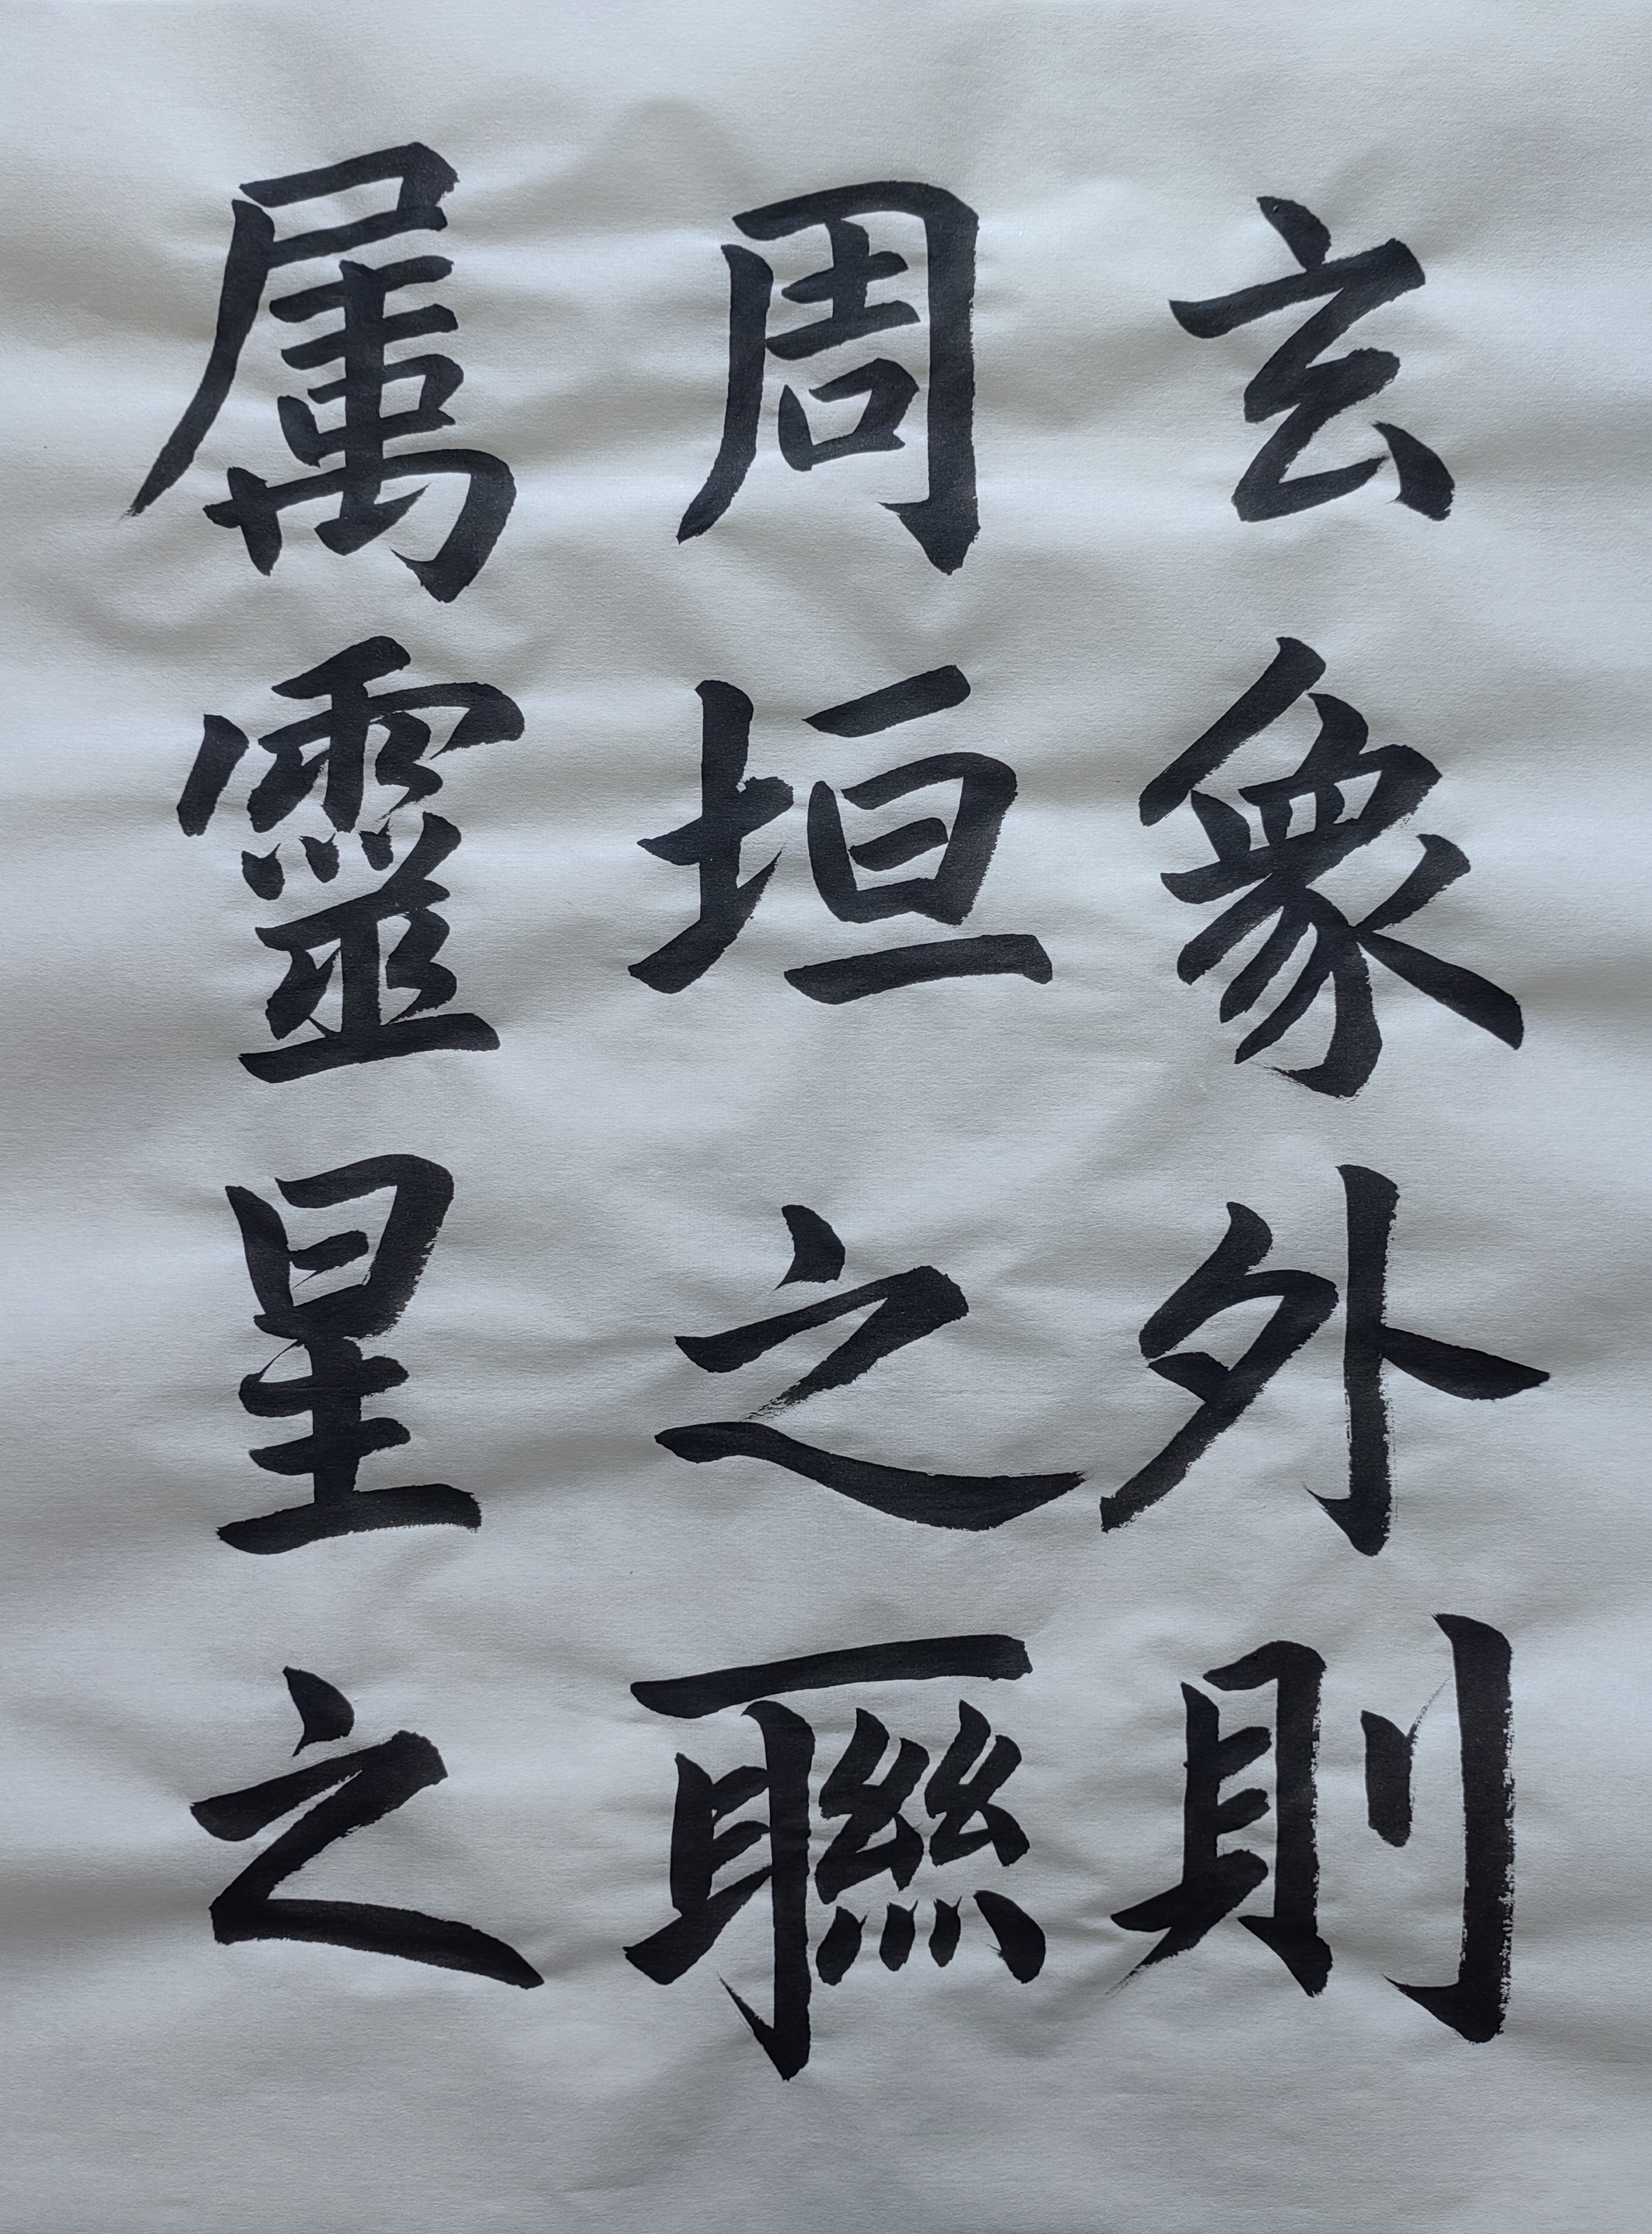 玄象外則
周垣之聯
属靈星之